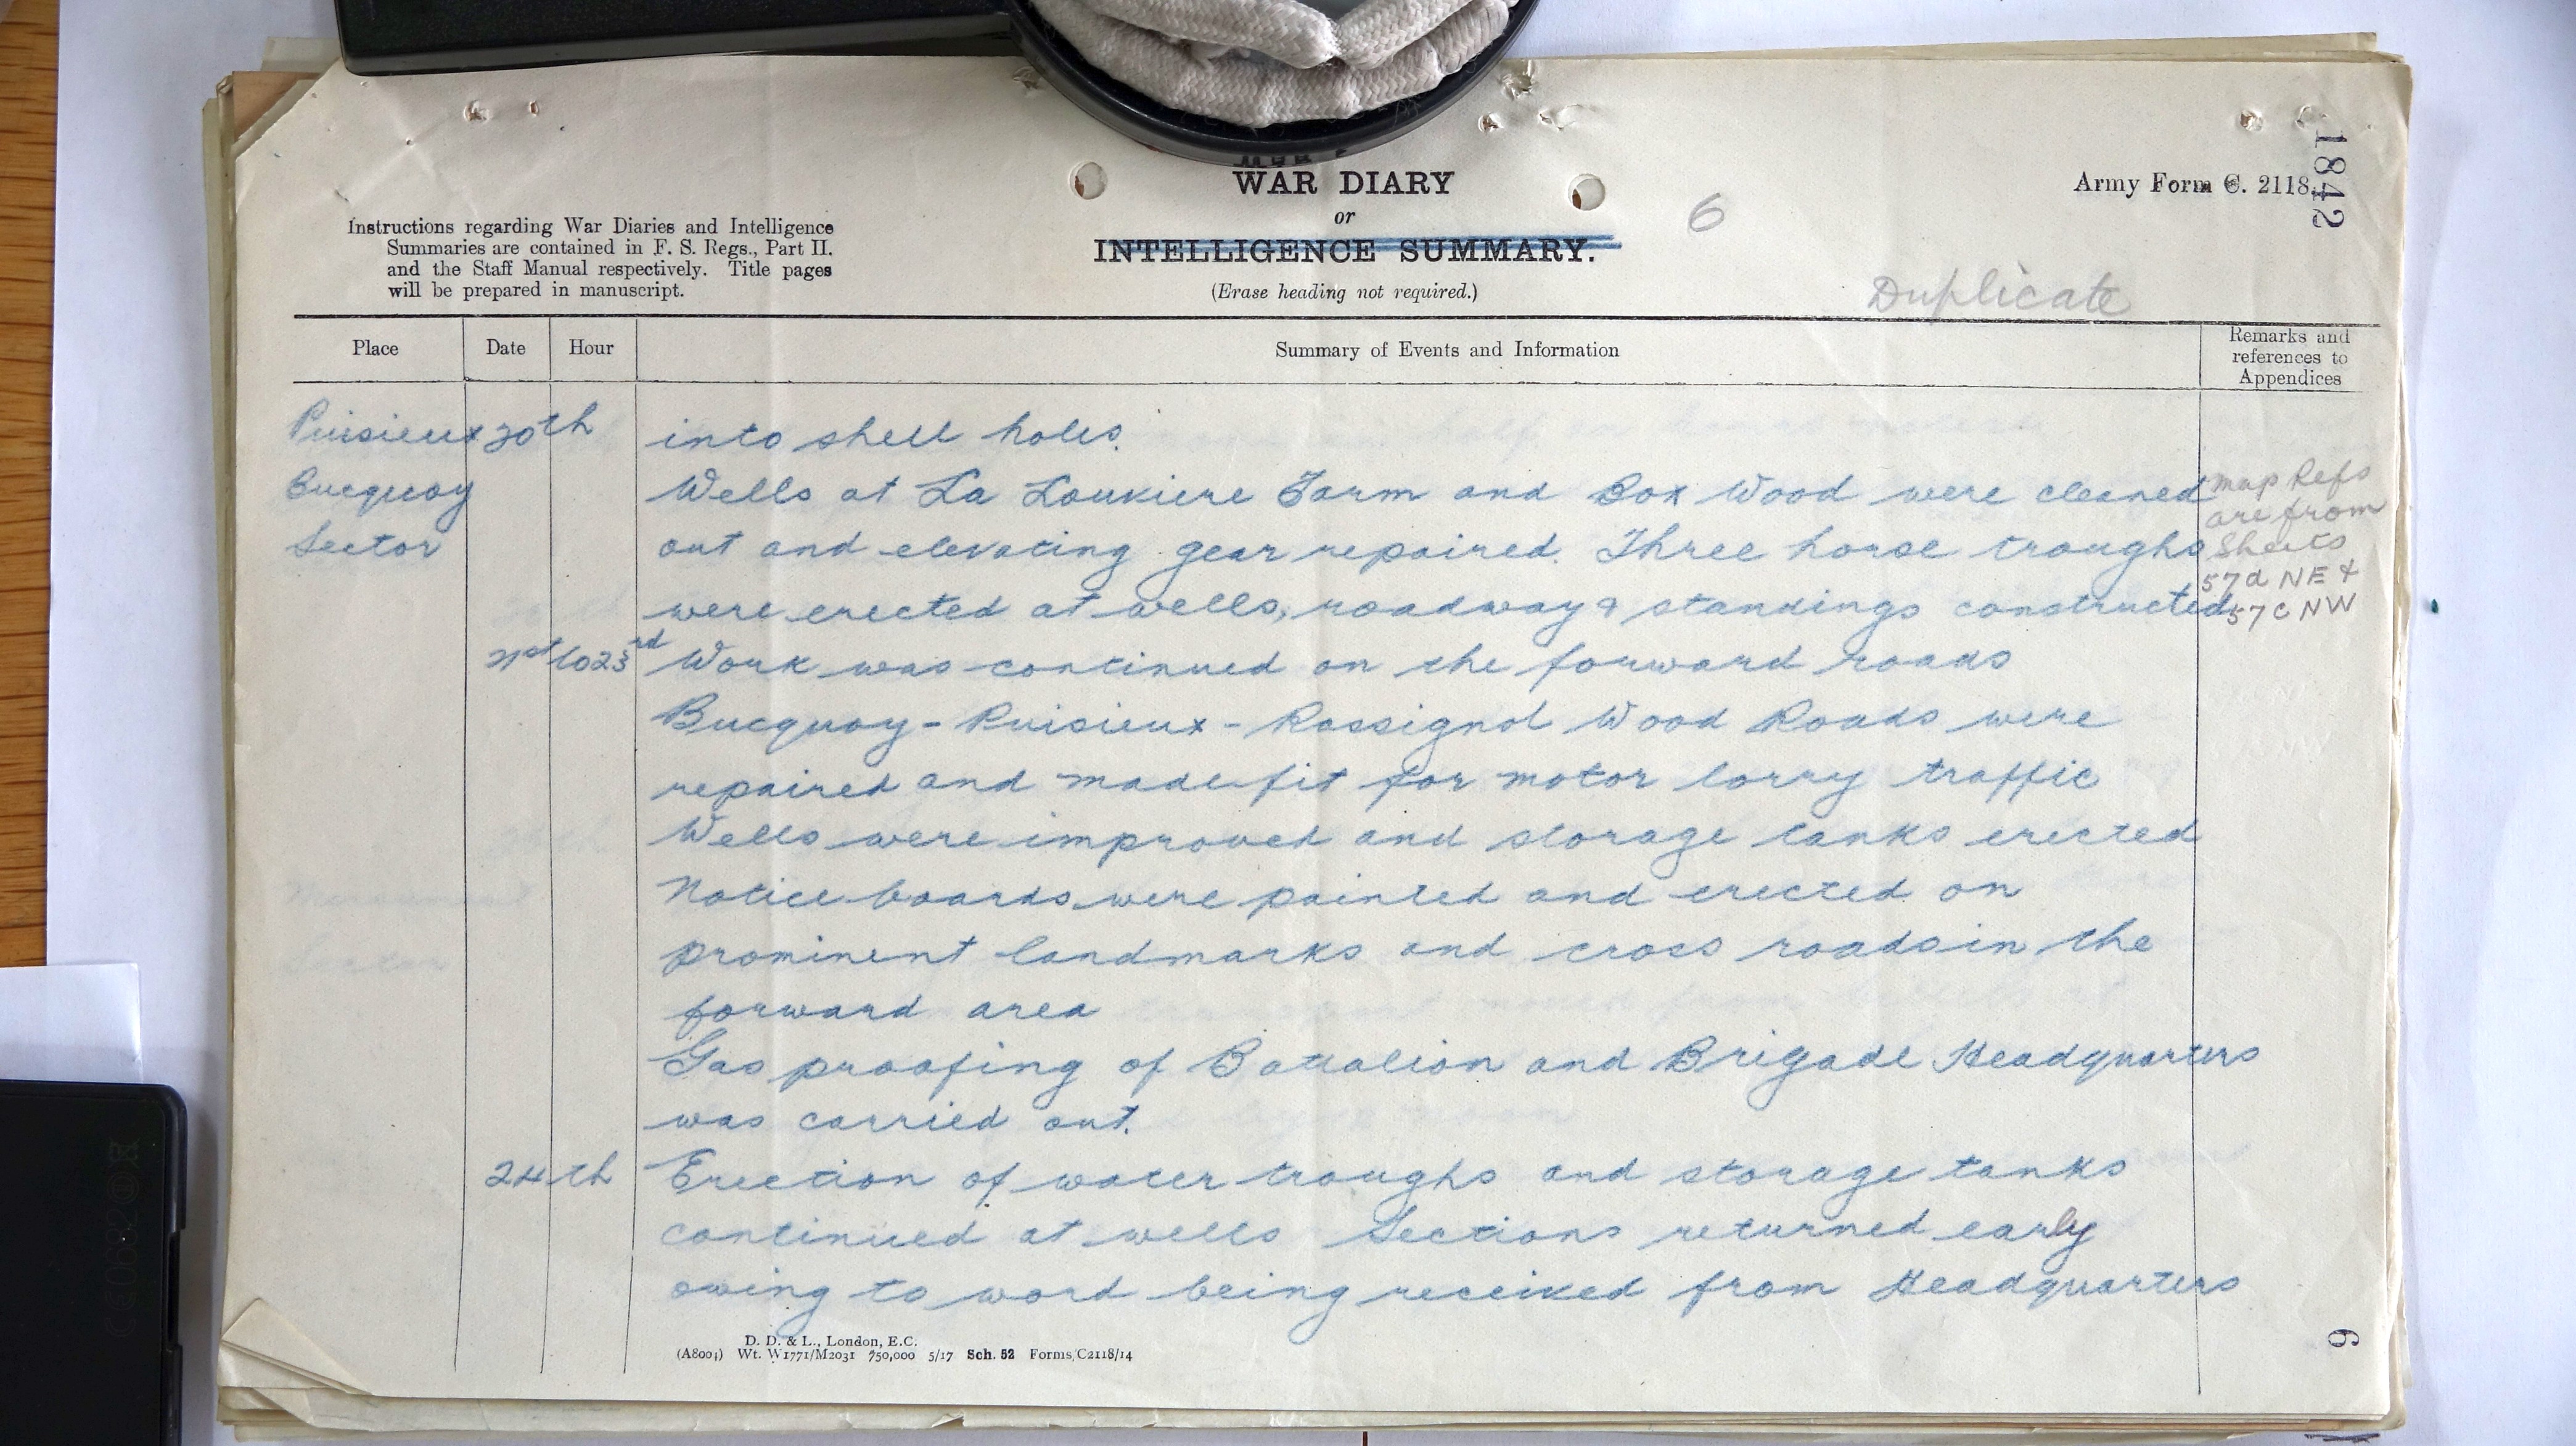 WAR DIARY
or
INTELLIGENCE SUMMARY.
(Erase heading not required.)
6
Army Form C. 2118.
1842
Duplicate
Instructions regarding War Diaries and Intelligence
Summaries are contained in F. S. Regs., Part II.
and the Staff Manual respectively. Title pages
will be prepared in manuscript.
Place Date Hour Summary of Events and Information Remarks and
references to
Appendices
Puisieux 20th into shell holes.
Bucquoy Wells at La Loukiere Farm and Box Wood were cleaned
Sector out and elevating gear repaired. Three horse troughs
were erected at wells, roadway & standings constructed
map Refs
are from
Sheets
57d NE &
57C NW
21st to 23rd Work was continued on the forward roads
Bucquoy - Puisieux - Rossignol Wood Roads were
repaired and made fit for motor lorry traffic
Wells were improved and storage tanks erected
Notice boards were painted and erected on
prominent landmarks and cross roads in the
forward area
Gas proofing of Battalion and Brigade Headquarters
was carried out.
24th Erection of water troughs and storage tanks
continued at wells Sections returned early
owing to word being received from Headquarters
D. D. & L., London, E.C.
(A8004) Wt. W1771/M2031 750,000 5/17 Sch. 52 Forms/C2118/14
6